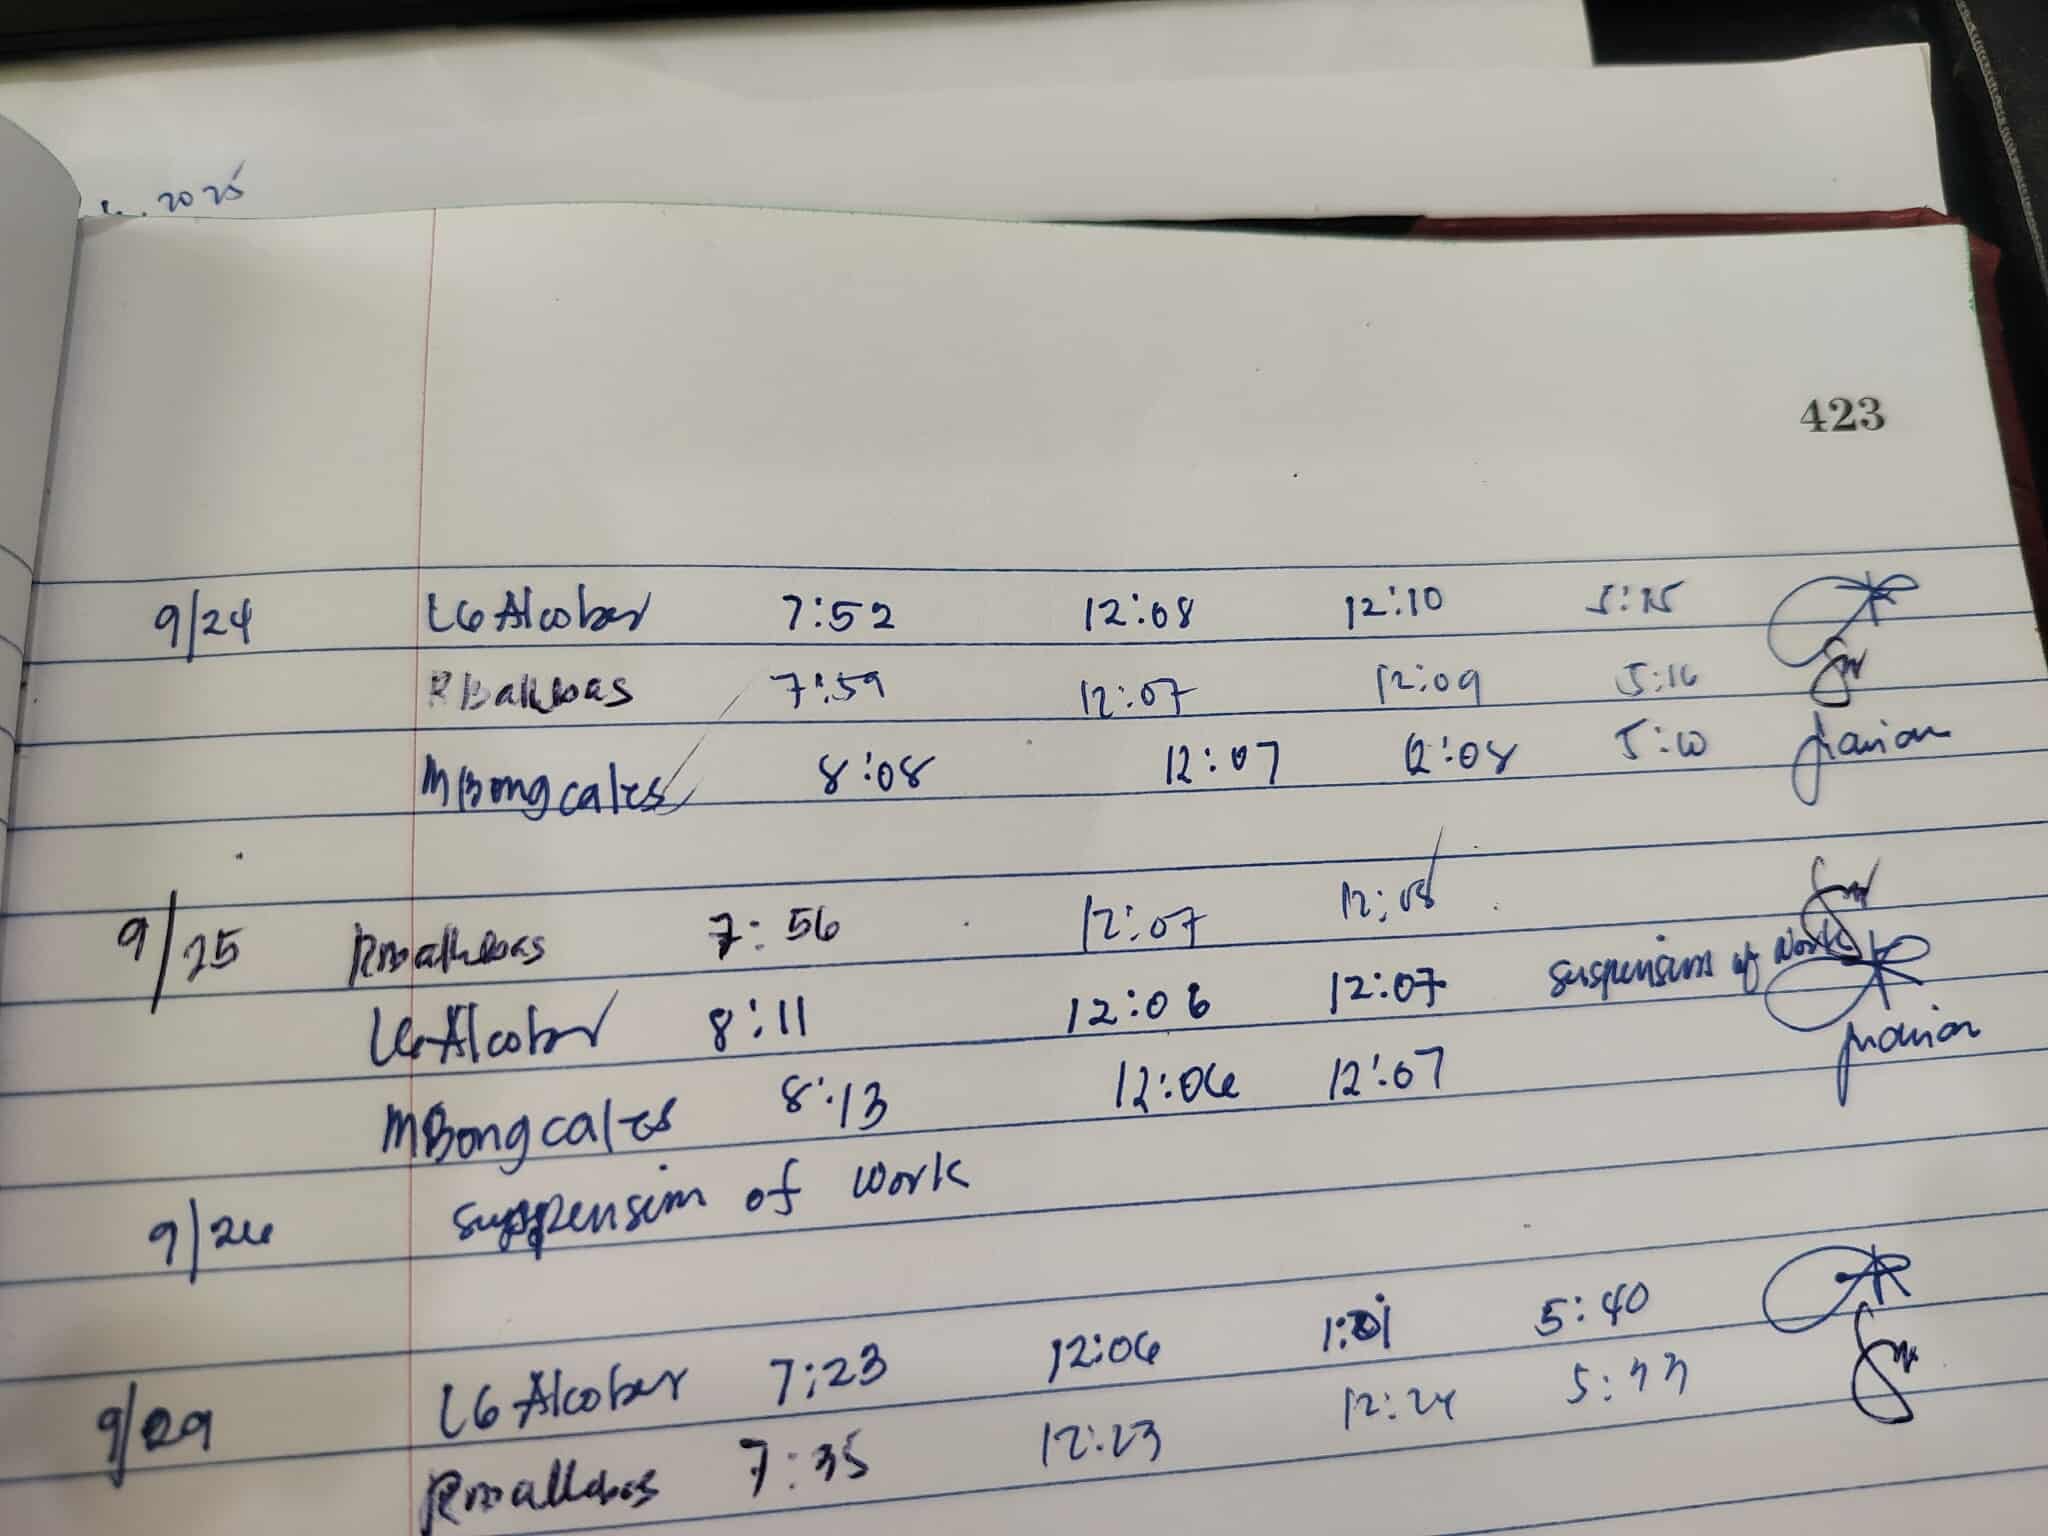 2025
423
9/24 LG Alcober 7:52 12:08 12:10 5:15
7:59 12:07 12:09 5:16
MBongcales 8:08 12:07 12:08 5:10 Marion
9/25 7:56 12:07 12:08
LG Alcober 8:11 12:06 12:07 suspension of work
MBongcales 8:13 12:06 12:07 Marion
9/26 suspension of work
9/29 LG Alcober 7:23 12:06 1:01 5:40
7:35 12:23 12:24 5:33